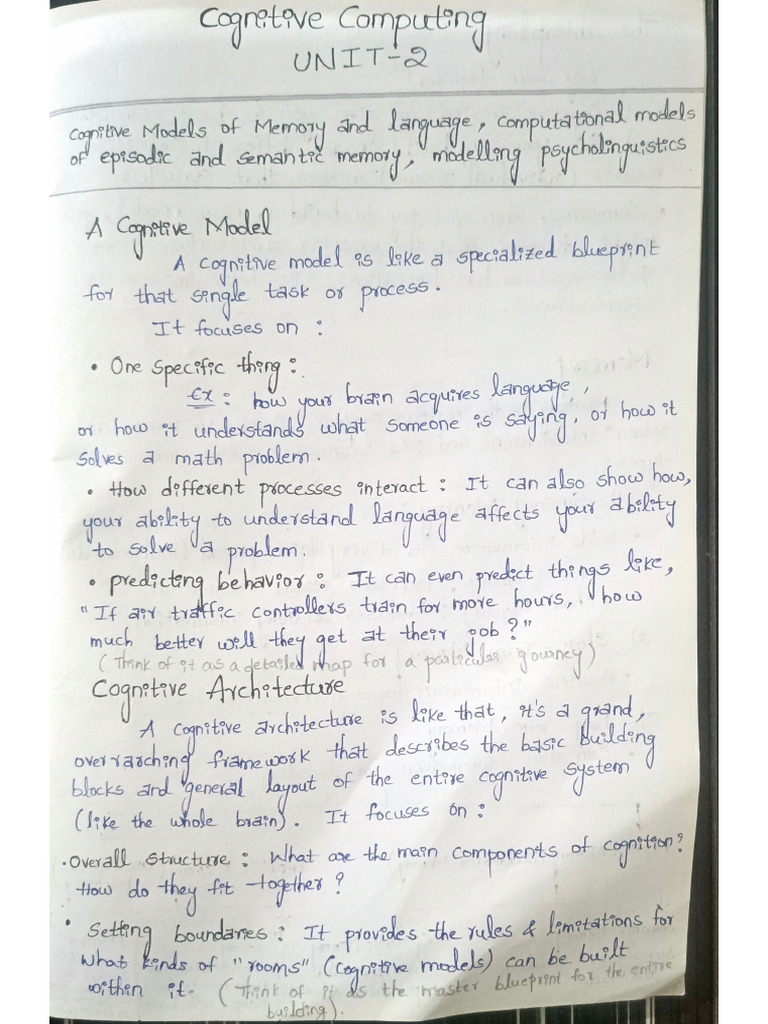 Cognitive Computing
UNIT-2
Cognitive Models of Memory and language, computational models
of episodic and semantic memory, modelling psycholinguistics
A Cognitive Model
A cognitive model is like a specialized blueprint
for that single task or process.
It focuses on :
• One specific thing :
Ex : how your brain acquires language,
or how it understands what someone is saying, or how it
solves a math problem.
• How different processes interact : It can also show how,
your ability to understand language affects your ability
to solve a problem.
• predicting behavior : It can even predict things like,
"If air traffic controllers train for more hours, how
much better will they get at their job?"
(Think of it as a detailed map for a particular journey)
Cognitive Architecture
A cognitive architecture is like that, it's a grand,
overrarching framework that describes the basic building
blocks and general layout of the entire cognitive system
(like the whole brain). It focuses on :
• Overall structure : What are the main components of cognition?
How do they fit together?
• Setting boundaries : It provides the rules & limitations for
what kinds of "rooms" (cognitive models) can be built
within it. (Think of it as the master blueprint for the entire
building).